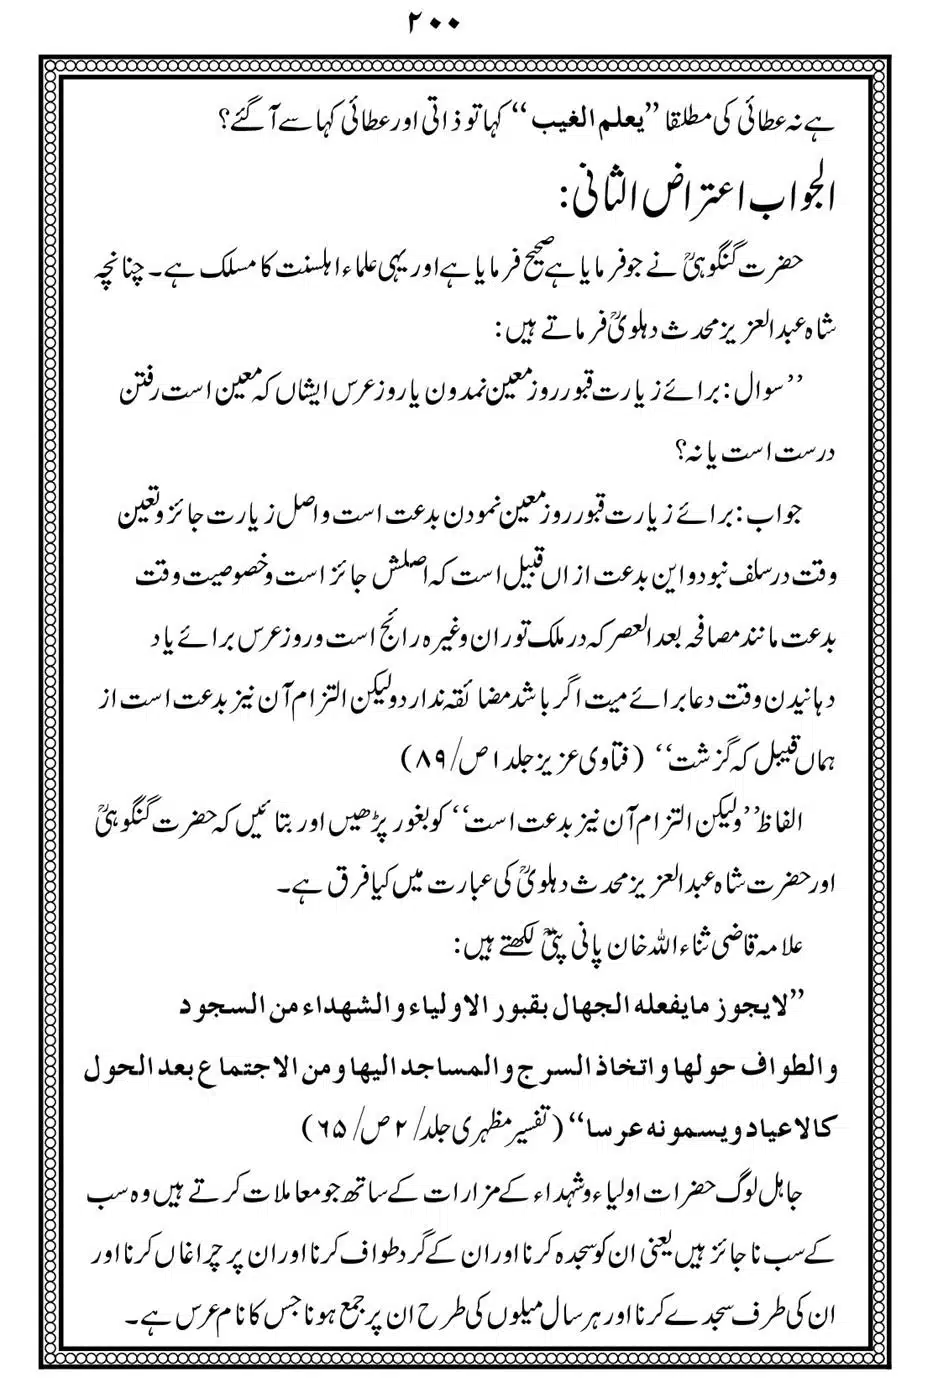 ۲۰۰
ہے نہ عطائی کی مطلقا ’’یعلم الغیب‘‘ کہا تو ذاتی اور عطائی کہا سے آگئے؟
الجواب اعتراض الثانی:
حضرت گنگوہیؒ نے جو فرمایا ہے صحیح فرمایا ہے اور یہی علماء اہلسنت کا مسلک ہے۔ چنانچہ
شاہ عبدالعزیز محدث دہلویؒ فرماتے ہیں:
’’سوال: برائے زیارت قبور روز معین نمدون یا روز عرس ایشاں کہ معین است رفتن
درست است یا نہ؟
جواب: برائے زیارت قبور روز معین نمودن بدعت است واصل زیارت جائز وتعین
وقت در سلف نبود واین بدعت ازاں قبیل است کہ اصلش جائز است وخصوصیت وقت
بدعت مانند مصافحہ بعد العصر کہ در ملک توران وغیرہ رائج است وروز عرس برائے یاد
دہانیدن وقت دعا برائے میت اگر باشد مضائقہ ندارد ولیکن التزام آن نیز بدعت است از
ہماں قبیل کہ گزشت‘‘ (فتاوی عزیز جلد ۱ ص/۸۹)
الفاظ ’’ولیکن التزام آن نیز بدعت است‘‘ کو بغور پڑھیں اور بتائیں کہ حضرت گنگوہیؒ
اور حضرت شاہ عبدالعزیز محدث دہلویؒ کی عبارت میں کیا فرق ہے۔
علامہ قاضی ثناء اللہ خان پانی پتیؒ لکھتے ہیں:
’’لایجوز مایفعلہ الجھال بقبور الاولیاء والشھداء من السجود
والطواف حولھا واتخاذ السرج والمساجد الیھا ومن الاجتماع بعد الحول
کالاعیاد ویسمونہ عرسا‘‘ (تفسیر مظہری جلد/۲ ص/۶۵)
جاہل لوگ حضرات اولیاء وشہداء کے مزارات کے ساتھ جو معاملات کرتے ہیں وہ سب
کے سب ناجائز ہیں یعنی ان کو سجدہ کرنا اور ان کے گرد طواف کرنا اور ان پر چراغاں کرنا اور
ان کی طرف سجدے کرنا اور ہر سال میلوں کی طرح ان پر جمع ہونا جس کا نام عرس ہے۔